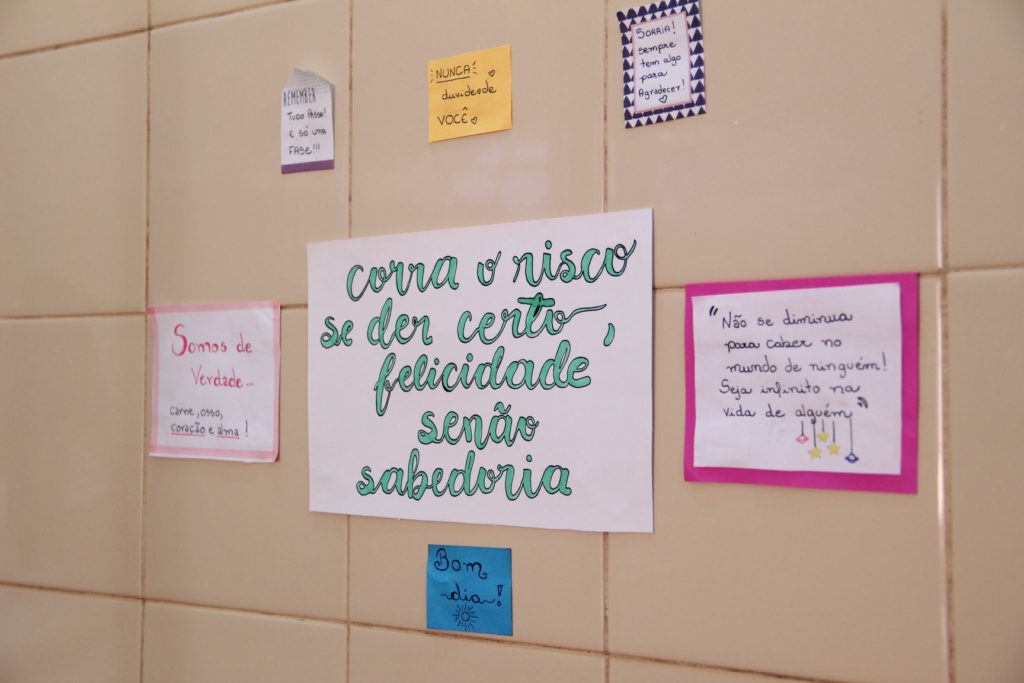 REMEMBER
TUDO PASSA!
E SÓ UMA
FASE!!!
NUNCA
duvidede
VOCÊ
SORRIA!
sempre
tem algo
para
Agradecer!
corra o risco
se der certo,
felicidade
senão
sabedoria
Somos de
Verdade...
carne, osso,
coração e alma!
"Não se diminua
para caber no
mundo de ninguém!
Seja infinito na
vida de alguém"
Bom
dia!